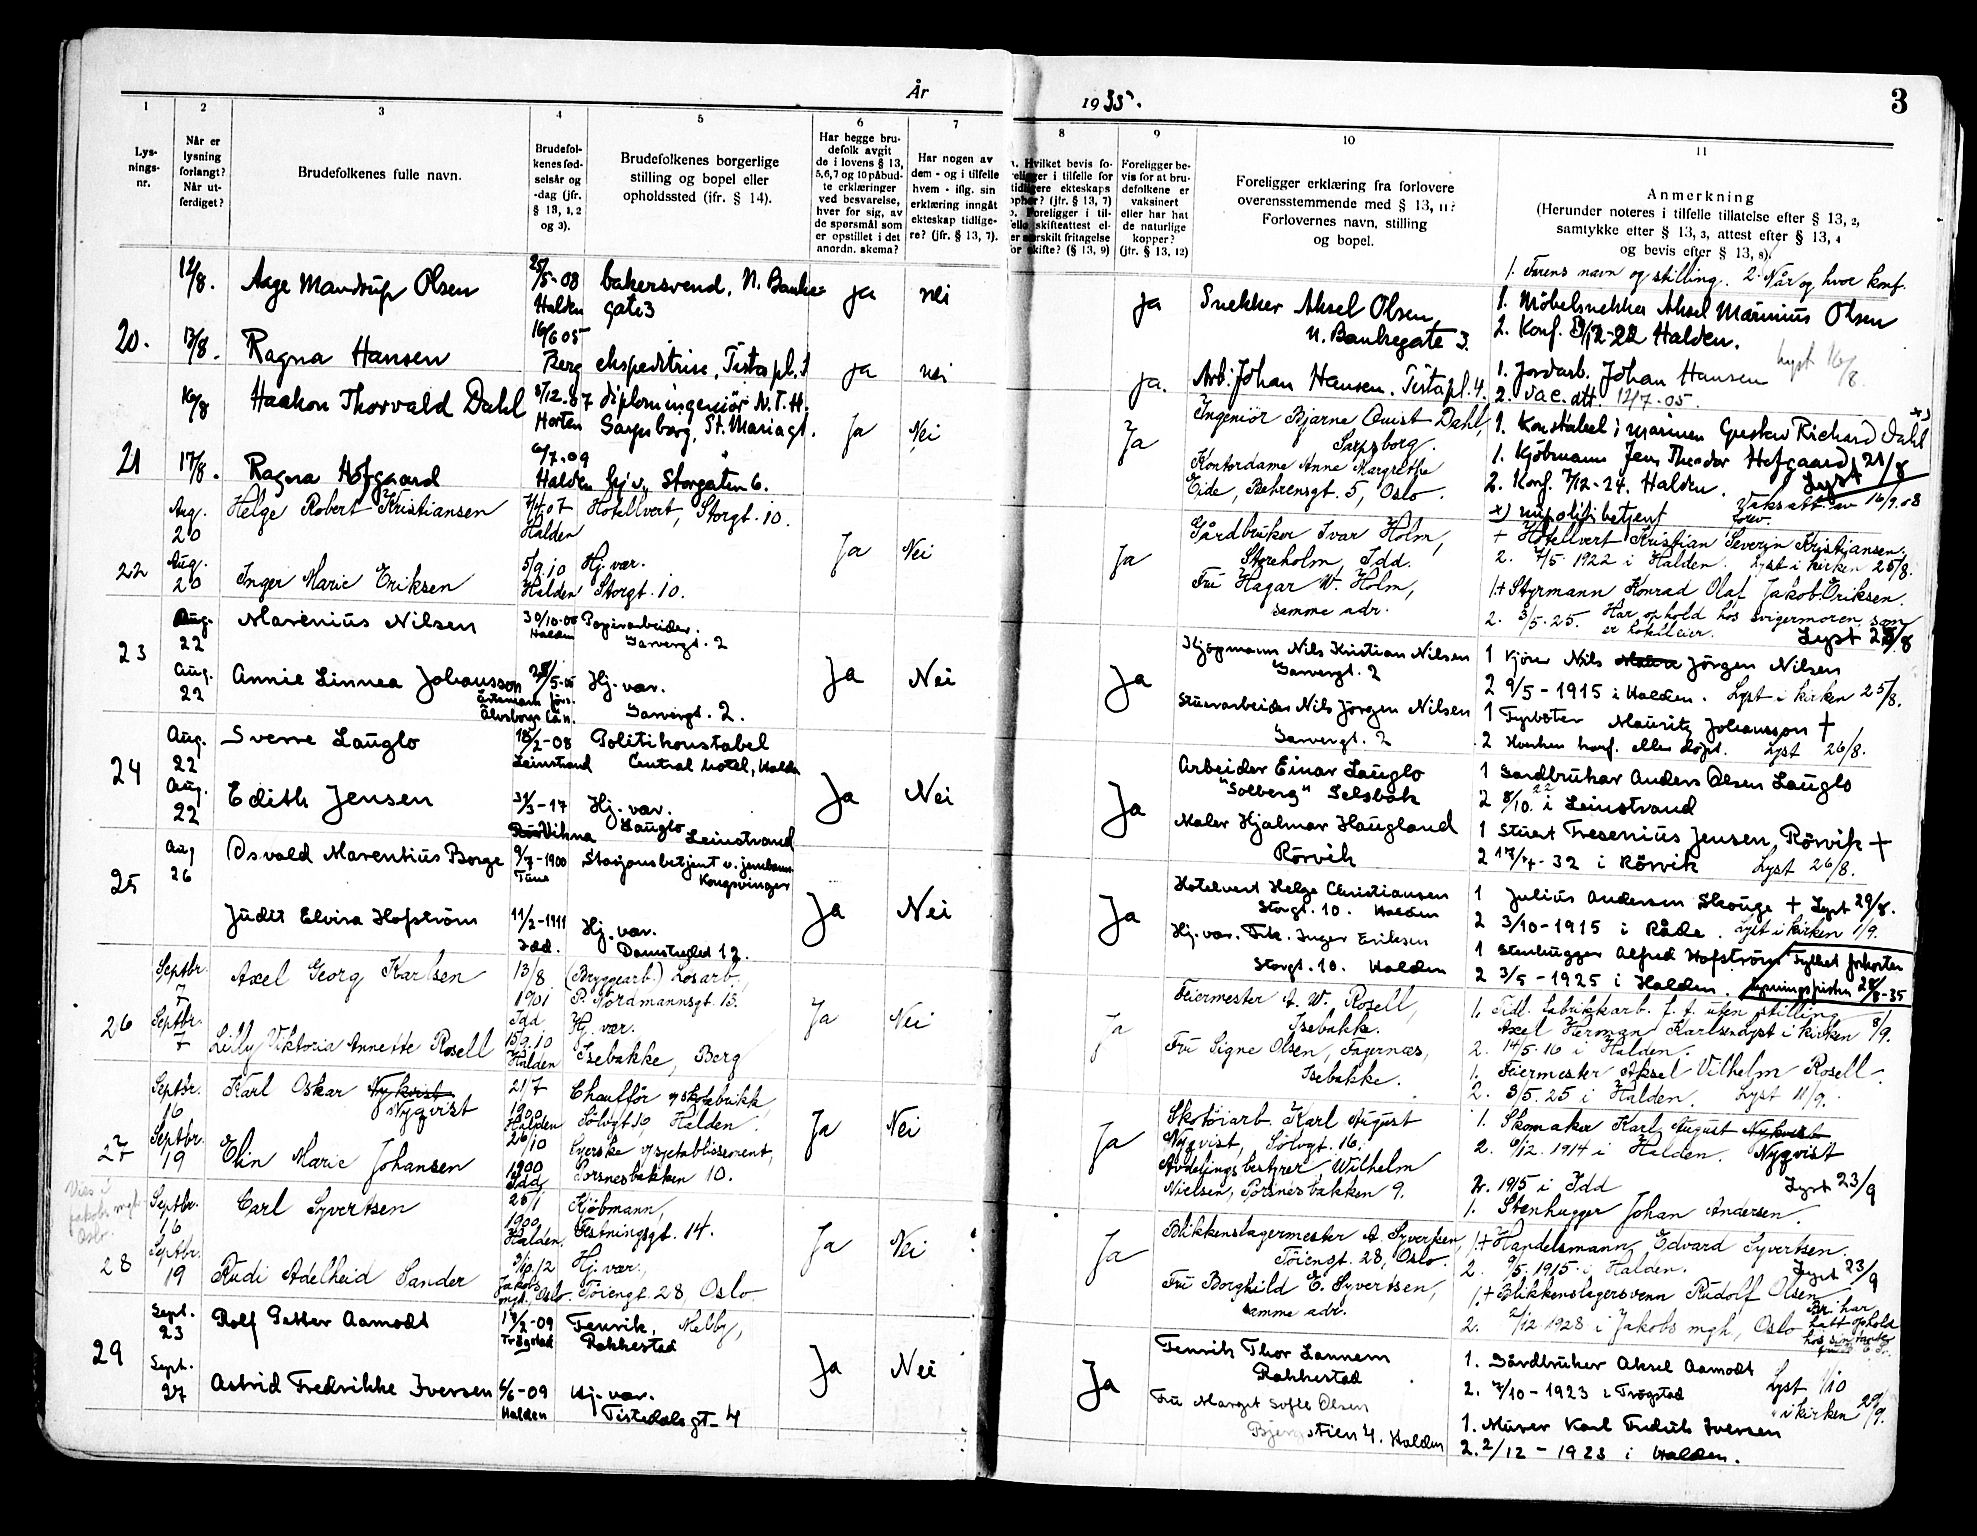 År 1935.
3
1
2
3
4
5
6
7
8
9
10
11
Lys-
nings-
nr.
Når er
lysning
forlangt?
Når ut-
ferdiget?
Brudefolkenes fulle navn.
Brudefol-
kenes fød-
selsår og
-dag (jfr.
§ 13, 1, 2
og 3).
Brudefolkenes borgerlige
stilling og bopel eller
opholdssted (jfr. § 14).
Har begge bru-
defolk avgit
de i lovens § 13,
5,6,7 og 10 påbud-
te erklæringer
ved besvarelse,
hver for sig, av
de spørsmål som
er opstillet i det
anordn. skema?
Har nogen av
dem - og i tilfelle
hvem - iflg. sin
erklæring inngått
ekteskap tidlige-
re? (jfr. § 13, 7).
Hvilket bevis fo-
religger i tilfelle for
tidligere ekteskaps
ophør? (jfr. § 13, 7)
Foreligger i til-
felle skifteattest el-
ler særskilt fritagelse
for skifte? (§ 13, 9)
Foreligger be-
vis for at bru-
defolkene er
vaksinert
eller har hat
de naturlige
kopper?
(jfr. § 13, 12)
Foreligger erklæring fra forlovere
overensstemmende med § 13, 11?
Forlovernes navn, stilling
og bopel.
Anmerkning
(Herunder noteres i tilfelle tillatelse efter § 13, 2,
samtykke efter § 13, 3, attest efter § 13, 4
og bevis efter § 13, 8).
1. Farens navn og stilling. 2. Når og hvor konf.
20.
12/8.
Aage Mandrup Olsen
25/5-08
Halden
bakersvend, N. Banke-
gate 3
ja
nei
ja
Snekker Aksel Olsen,
N. Bankegate 3.
1. Möbelsnekker Aksel Marinius Olsen
2. Konf. 3/12-22 Halden.
13/8.
Ragna Hansen
16/6 05
Berg
ekspeditrise, Tistapl. 1
ja
nei
ja.
Arb. Johan Hansen. Tistapl. 4.
1. Jordarb. Johan Hansen
2. Vac. att. 12/7-05.
Lyst 16/8.
21
16/8
Haakon Thorvald Dahl
8/12.07
Horten
diplomingeniör N.T.H.
Sarpsborg, St. Mariagt.
Ja
Nei
Ja
Ingeniör Bjarne Quist Dahl,
Sarpsborg.
1. Konstabel i marinen Gustav Richard Dahl x)
17/8.
Ragna Hofgaard
6/7.09
Halden
Hj.v. Storgaten 6.
Kontordame Anne Margrethe
Eide, Behrensgt. 5, Oslo.
1. Kjöbmann Jens Theodor Hofgaard
2. Konf. 7/12-24. Halden.
Lyst 21/8
Vaksatt. av 16/9.08
x) nu politibetjent
22
Aug.
20
Helge Robert Kristiansen
7/4.07
Halden
Hotellvert, Storgt. 10.
Ja
Nei
Ja
Gårdbruker Ivar Holm,
Storeholm, Idd.
+ Hotellvert Kristian Severin Kristiansen.
2. 7/5 1922 i Halden. Lyst i kirken 25/8.
Aug.
20
Inger Marie Eriksen
5/9.10
Halden
Hj. vær.
Storgt. 10.
Fru Hagar W. Holm,
samme adr.
1+ Styrmann Konrad Olaf Jakob Eriksen.
2. 3/5-25. Har ophold hos svigermoren som
er hotelleier.
Lyst 23/8
23
Aug.
22
Marenius Nilsen
30/10-06
Halden
Papirarbeider.
Garvergt. 2
Ja
Nei
Ja
Kjøpmann Nils Kristian Nilsen
Garvergt. 2
1 Kjörer Nils Jörgen Nilsen
2 9/5-1915 i Halden. Lyst i kirken 25/8.
Aug.
22
Annie Linnea Johansson
28/5-06
Älvsborgs Län.
Hj. vær.
Garvergt. 2.
Stuerarbeider Nils Jörgen Nilsen
Garvergt. 2
1 Fyrböter Mauritz Johansson +
2 Hverken konf. eller döpt. Lyst 26/8.
24
Aug.
22
Sverre Lauglo
18/2-08
Leinstrand
Politikonstabel
Central hotel, Halden
Ja
Nei
Ja
Arbeider Einar Lauglo
"Solberg" Selsbak
1 Gardbruker Anders Olsen Lauglo
2 8/10.22 i Leinstrand
Aug.
22
Edith Jensen
31/3-17
Vikna
Hj. vær.
Lauglo
Leinstrand
Maler Hjalmar Haugland
Rörvik
1 Stuert Fresenius Jensen, Rörvik +
2 17/7-32 i Rörvik Lyst 26/8.
25
Aug
26
Osvald Marentius Borge
9/7-1900
Tune
Stasjonsbetjent v. jernbanen
Kongsvinger
Ja
Nei
Ja
Hotelvert Helge Christiansen
Storgt. 10. Halden
1 Julius Andersen Skouge + Lyst 29/8.
2 3/10-1915 i Råde. Lyst i kirken 1/9.
Judit Elvira Hofström
11/2-1911
Idd.
Hj. vær.
Damstredet 12.
Hj. vær. Frk. Inger Eriksen
Storgt. 10. Halden
1 Stenhugger Alfred Hofström
2 3/5-1925 i Halden.
Fylket forkorter
lysningsfristen 28/8-35
26
Septbr.
7
Axel Georg Karlsen
13/8
1901
Idd
(Bryggearb.) Losarb.,
P. Nordmannsgt. 13.
Ja
Nei
Ja
Feiermester A. W. Rosell,
Isebakke.
1. Tidl. fabrikkarb. f. t. uten stilling
Axel Herman Karlsen Lyst i kirken 8/9.
2. 14/5-16 i Halden.
Septbr.
7
Lilly Viktoria Annette Rosell
15/9.10
Halden
Hj. vær.
Isebakke, Berg
Fru Signe Olsen, Fagernæs,
Isebakke.
1. Feiermester Aksel Vilhelm Rosell.
2. 3/5.25 i Halden. Lyst 11/9.
27
Septbr.
16
Karl Oskar Nykvist
Nyqvist
21/7
1900
Halden
Chauffør v/skofabrikk,
Sölvgt 10, Halden.
Ja
Nei
Ja
Skotöiarb. Karl August
Nyqvist, Sölvgt. 16.
1. Skomaker Karl August Nykvist
2. 6/12. 1914 i Halden. Nyqvist
Septbr.
19
Elin Marie Johansen
26/10
1900
Idd
Syerske v/syetablissement,
Porsnesbakken 10.
Avdelingsbestyrer Wilhelm
Nielsen, Porsnesbakken 9.
2. 1915 i Idd
1. Stenhugger Johan Andersen.
Lyst 23/9
Vies i
Jakobs mgh.
Oslo.
28
Septbr.
16
Carl Syvertsen
25/1
1900
Halden.
Kjöbmann,
Festningsgt. 14.
Ja
Nei
Ja
Blikkenslagermester A. Syvertsen,
Töiengt. 28, Oslo.
1+ Handelsmann Edvard Syvertsen.
2. 9/5. 1915 i Halden. Lyst 23/9
Septbr.
19
Rudi Adelheid Sander
9/10.12
Jakobs
mgh., Oslo.
Hj. vær.,
Töiengt. 28, Oslo.
Fru Borghild E. Syvertsen,
samme adr.
1.+ Blikkenslagersvenn Rudolf Olsen
2. 2/12 1928 i Jakobs mgh., Oslo
Bri. har
hatt ophold
hos sin tante
29
Sept.
23
Rolf Petter Aamodt
17/2-09
Trögstad
Fenrik, Melby,
Rakkestad
Ja
Nei
Ja
Fenrik Thor Lannem
Rakkestad
1. Gårdbruker Aksel Aamodt
2. 7/10-1923 i Trögstad
Lyst 1/10
" i kirken 29/9.
Sept.
27
Astrid Fredrikke Iversen
6/6-09
Halden
Hj. vær.
Tistedalsgt. 4
Fru Margit Sofie Olsen
Bjørnstien 4. Halden
1. Murer Karl Fredrik Iversen
2. 2/12-1923 i Halden.